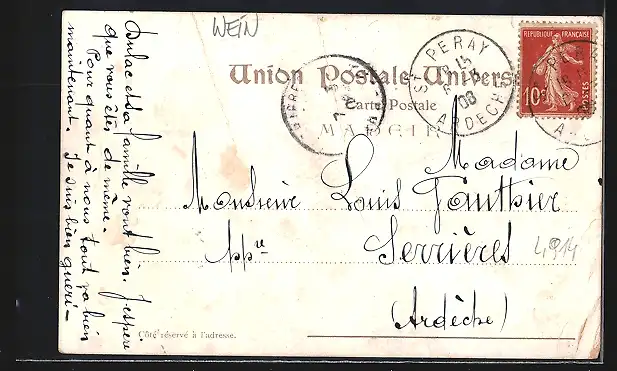 WEIN
Union Postale Universe
Carte Postale
MADEIR
ST PERAY
ARDECHE
08
REPUBLIQUE FRANÇAISE
10c
POSTES
Madame
Monsieur Louis Gauthier
ppre Serrières
4914
(Ardèche)
Côté réservé à l'adresse.
et sa famille vont bien. J'espère
que vous êtes de même.
Pour quant à nous tout va bien
maintenant. Je suis bien guéri -